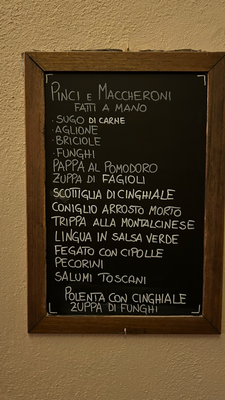 PINCI E MACCHERONI
FATTI A MANO
· SUGO DI CARNE
· AGLIONE
· BRICIOLE
· FUNGHI
PAPPA AL POMODORO
ZUPPA DI FAGIOLI
SCOTTIGLIA DI CINGHIALE
CONIGLIO ARROSTO MORTO
TRIPPA ALLA MONTALCINESE
LINGUA IN SALSA VERDE
FEGATO CON CIPOLLE
PECORINI
SALUMI TOSCANI
POLENTA CON CINGHIALE
ZUPPA DI FUNGHI